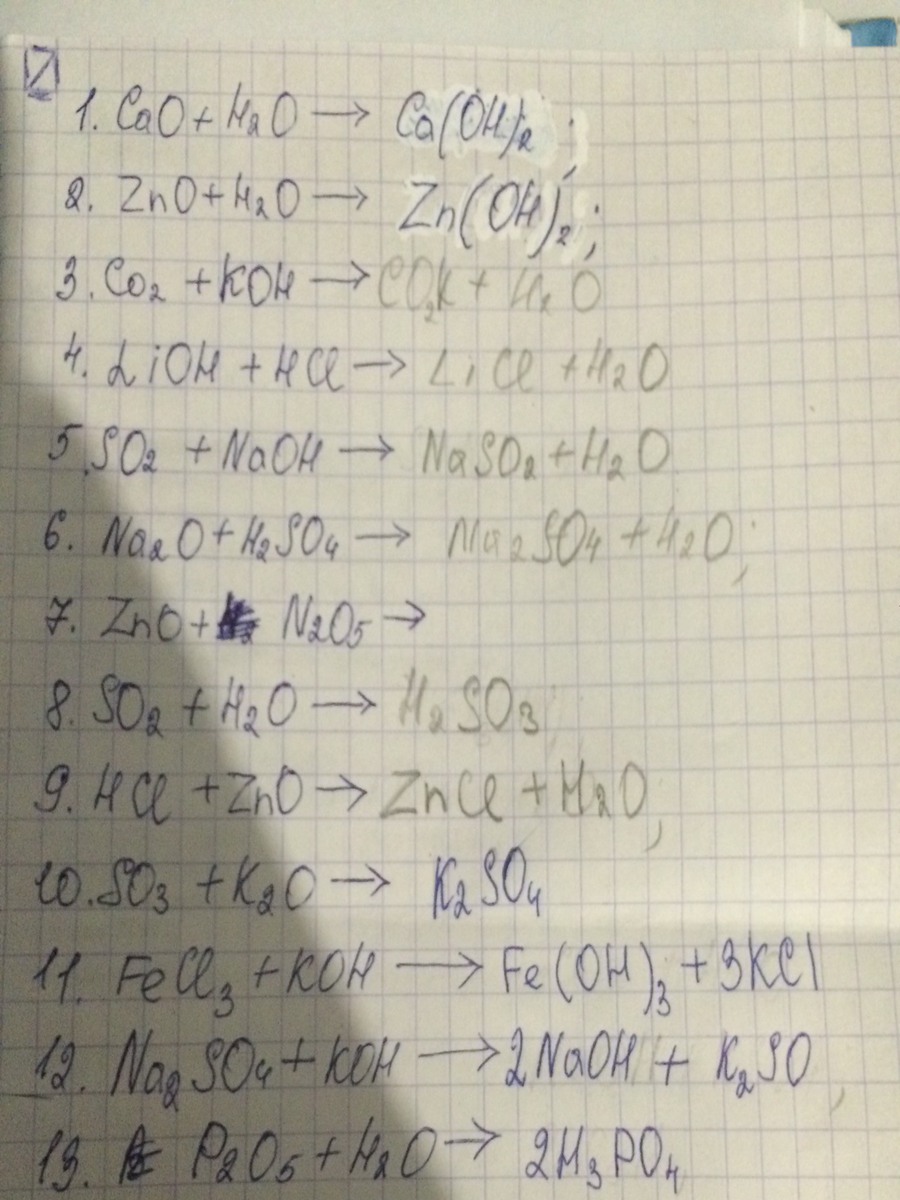 1. CaO + H₂O → Ca(OH)₂ ;
2. ZnO + H₂O → Zn(OH)₂ ;
3. Co₂ + KOH → CO₂K + H₂O
4. LiOH + HCl → LiCl + H₂O
5. SO₂ + NaOH → NaSO₂ + H₂O
6. Na₂O + H₂SO₄ → Na₂SO₄ + H₂O ;
7. ZnO + N₂O₅ →
8. SO₂ + H₂O → H₂SO₃
9. HCl + ZnO → ZnCl + H₂O ,
10. SO₃ + K₂O → K₂SO₄
11. FeCl₃ + KOH → Fe(OH)₃ + 3KCl
12. Na₂SO₄ + KOH → 2NaOH + K₂SO ,
13. P₂O₅ + H₂O → 2H₃PO₄